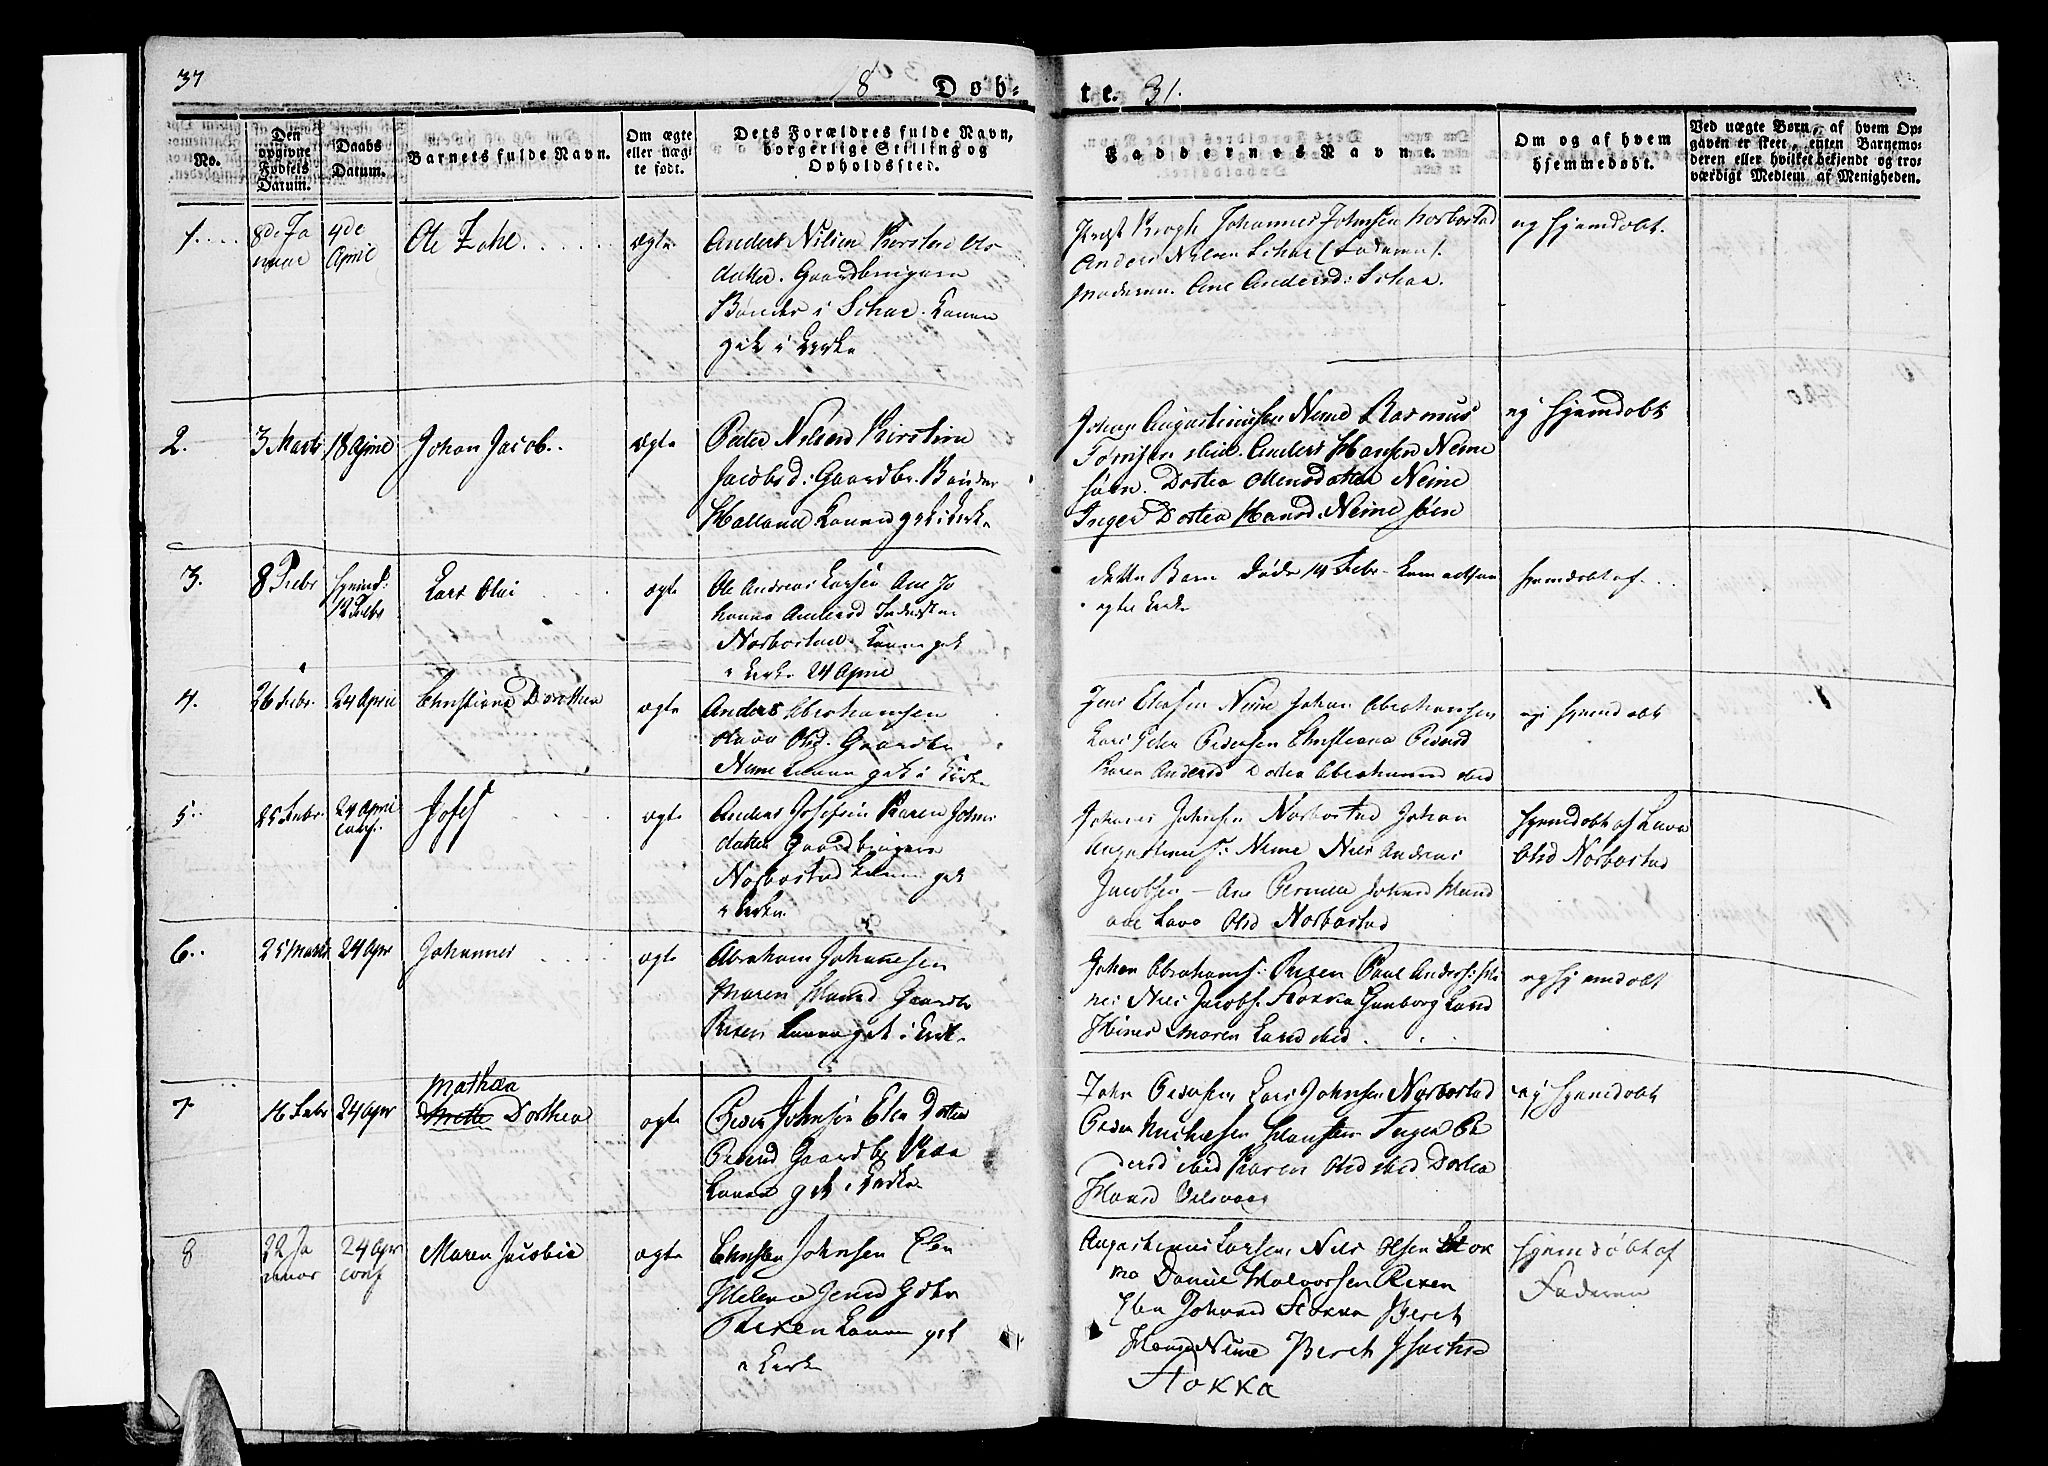 37
18 Døb-
te. 31.
No.
Den
opgivne
Fødsels
Datum.
Daabs
Datum.
Barnets fulde Navn.
Om ægte
eller uæg-
te født.
Dets Forældres fulde Navn,
borgerlige Stilling og
Opholdssted.
Faddernes Navne.
Om og af hvem
hjemmedøbt.
Ved uægte Børn, af hvem Op-
gaven er skeet, enten Barnemo-
deren eller hvilket bekjendt og tro-
værdigt Medlem af Menigheden.
1
8de Ja
nuar
4de
April
Ole Zahl
ægte
Anders Nilsen Kirsten Ols
datter. Gaardbrugere
Bønder i Schar. Konen
gik i Kirke
Johannes Johnsen Norbostad
Anders Nilsen Schar (Faderen).
Moderen. Ane Andersd: Schar.
ej hjemdøbt.
2.
3 Marts
18 April
Johan Jacob.
ægte
Peder Nilsen Kirstine
Jacobsd: Gaardbr. Bønder
Halland Konen gik i Kirke
Johan Augustinussen Neine Rasmus
Anders Hansen Neine
Dortea Monsdatter Neine
Inger Dortea Hansd: Neine
ej hjemdøbt
3.
8 Febr
hjemd:
12 Febr
Lars Olai
ægte
Ole Andreas Larsen Ane Jo
hanna Andersd
Norbostad. Konen gik
i Kirke 24 April
dette Barn døde 14 Febr
hjemdøbt af
4.
26 Febr.
24 April
Christiane Dorthea
ægte
Anders Abrahamsen
Olsd. Gaardbr
Neine Konen gik i Kirke
Jens Neine Johan Abrahamsen
Lars Peder Pedersen Christiana Pedersd
Karen Andersd Dortea Abrahamsd ibid
ej hjemdøbt
5.
25 Febr.
24 April
conf.
Josef
ægte
Anders Josefsen Karen Johns
datter Gaardbrugere
Norbostad Konen gik
i Kirke
Johannes Johnsen Norbostad Johan
Augustinus: Neine Nils Andreas
Jacobsen - Ane Pernilla
Lava Olsd Norbostad
hjemdøbt af Lava
Olsd Norbostad
6.
25 Marts
24 Apr
Johannes
ægte
Abraham Johannesen
Maren Hansd Gaardbr
Rexen Konen gik i Kirke
Johan Abrahams: Rexen Paul Anders:
Nils Jacobs. Stokka Gunborg Larsd
Maren Larsd ibid.
ej hjemdøbt
7
16 Febr
24 Apr
Mathea
Dorthea
ægte
Peder Johnsen Elen Dortea
Pedersd Gaardbr
Konen gik i Kirke
John Pedersen Lars Johnsen Norbostad
Peder Michelsen Inger Pe
dersd ibid Karen Olsd ibid Dortea
Hansd
ej hjemdøbt
8
22 Ja
nuar
24 Apr
conf
Maren Jacobia
ægte
Christen Johnsen Elen
Helena Jensd Gdbr
Rexen Konen gik
i Kirke
Augustinus Larsen Nils Olsen Stok
ka Daniel Halvorsen Rexen
Elen Johnsd Stokka Beret
Hansd Neine Beret Isachsd
Stokka
hjemdøbt af
Faderen